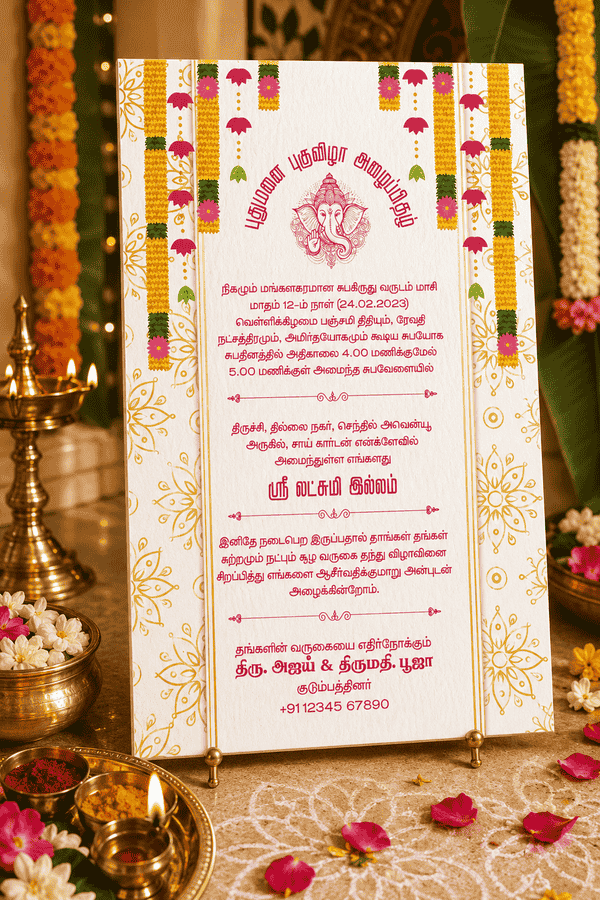 புதுமனை புகுவிழா அழைப்பிதழ்
நிகழும் மங்களகரமான சுபகிருது வருடம் மாசி
மாதம் 12-ம் நாள் (24.02.2023)
வெள்ளிக்கிழமை பஞ்சமி திதியும், ரேவதி
நட்சத்திரமும், அமிர்தயோகமும் கூடிய சுபயோக
சுபதினத்தில் அதிகாலை 4.00 மணிக்குமேல்
5.00 மணிக்குள் அமைந்த சுபவேளையில்
திருச்சி, தில்லை நகர், செந்தில் அவென்யூ
அருகில், சாய் கார்டன் என்க்ளேவில்
அமைந்துள்ள எங்களது
ஸ்ரீ லட்சுமி இல்லம்
இனிதே நடைபெற இருப்பதால் தாங்கள் தங்கள்
சுற்றமும் நட்பும் சூழ வருகை தந்து விழாவினை
சிறப்பித்து எங்களை ஆசீர்வதிக்குமாறு அன்புடன்
அழைக்கின்றோம்.
தங்களின் வருகையை எதிர்நோக்கும்
திரு. அஜய் & திருமதி. பூஜா
குடும்பத்தினர்
+91 12345 67890